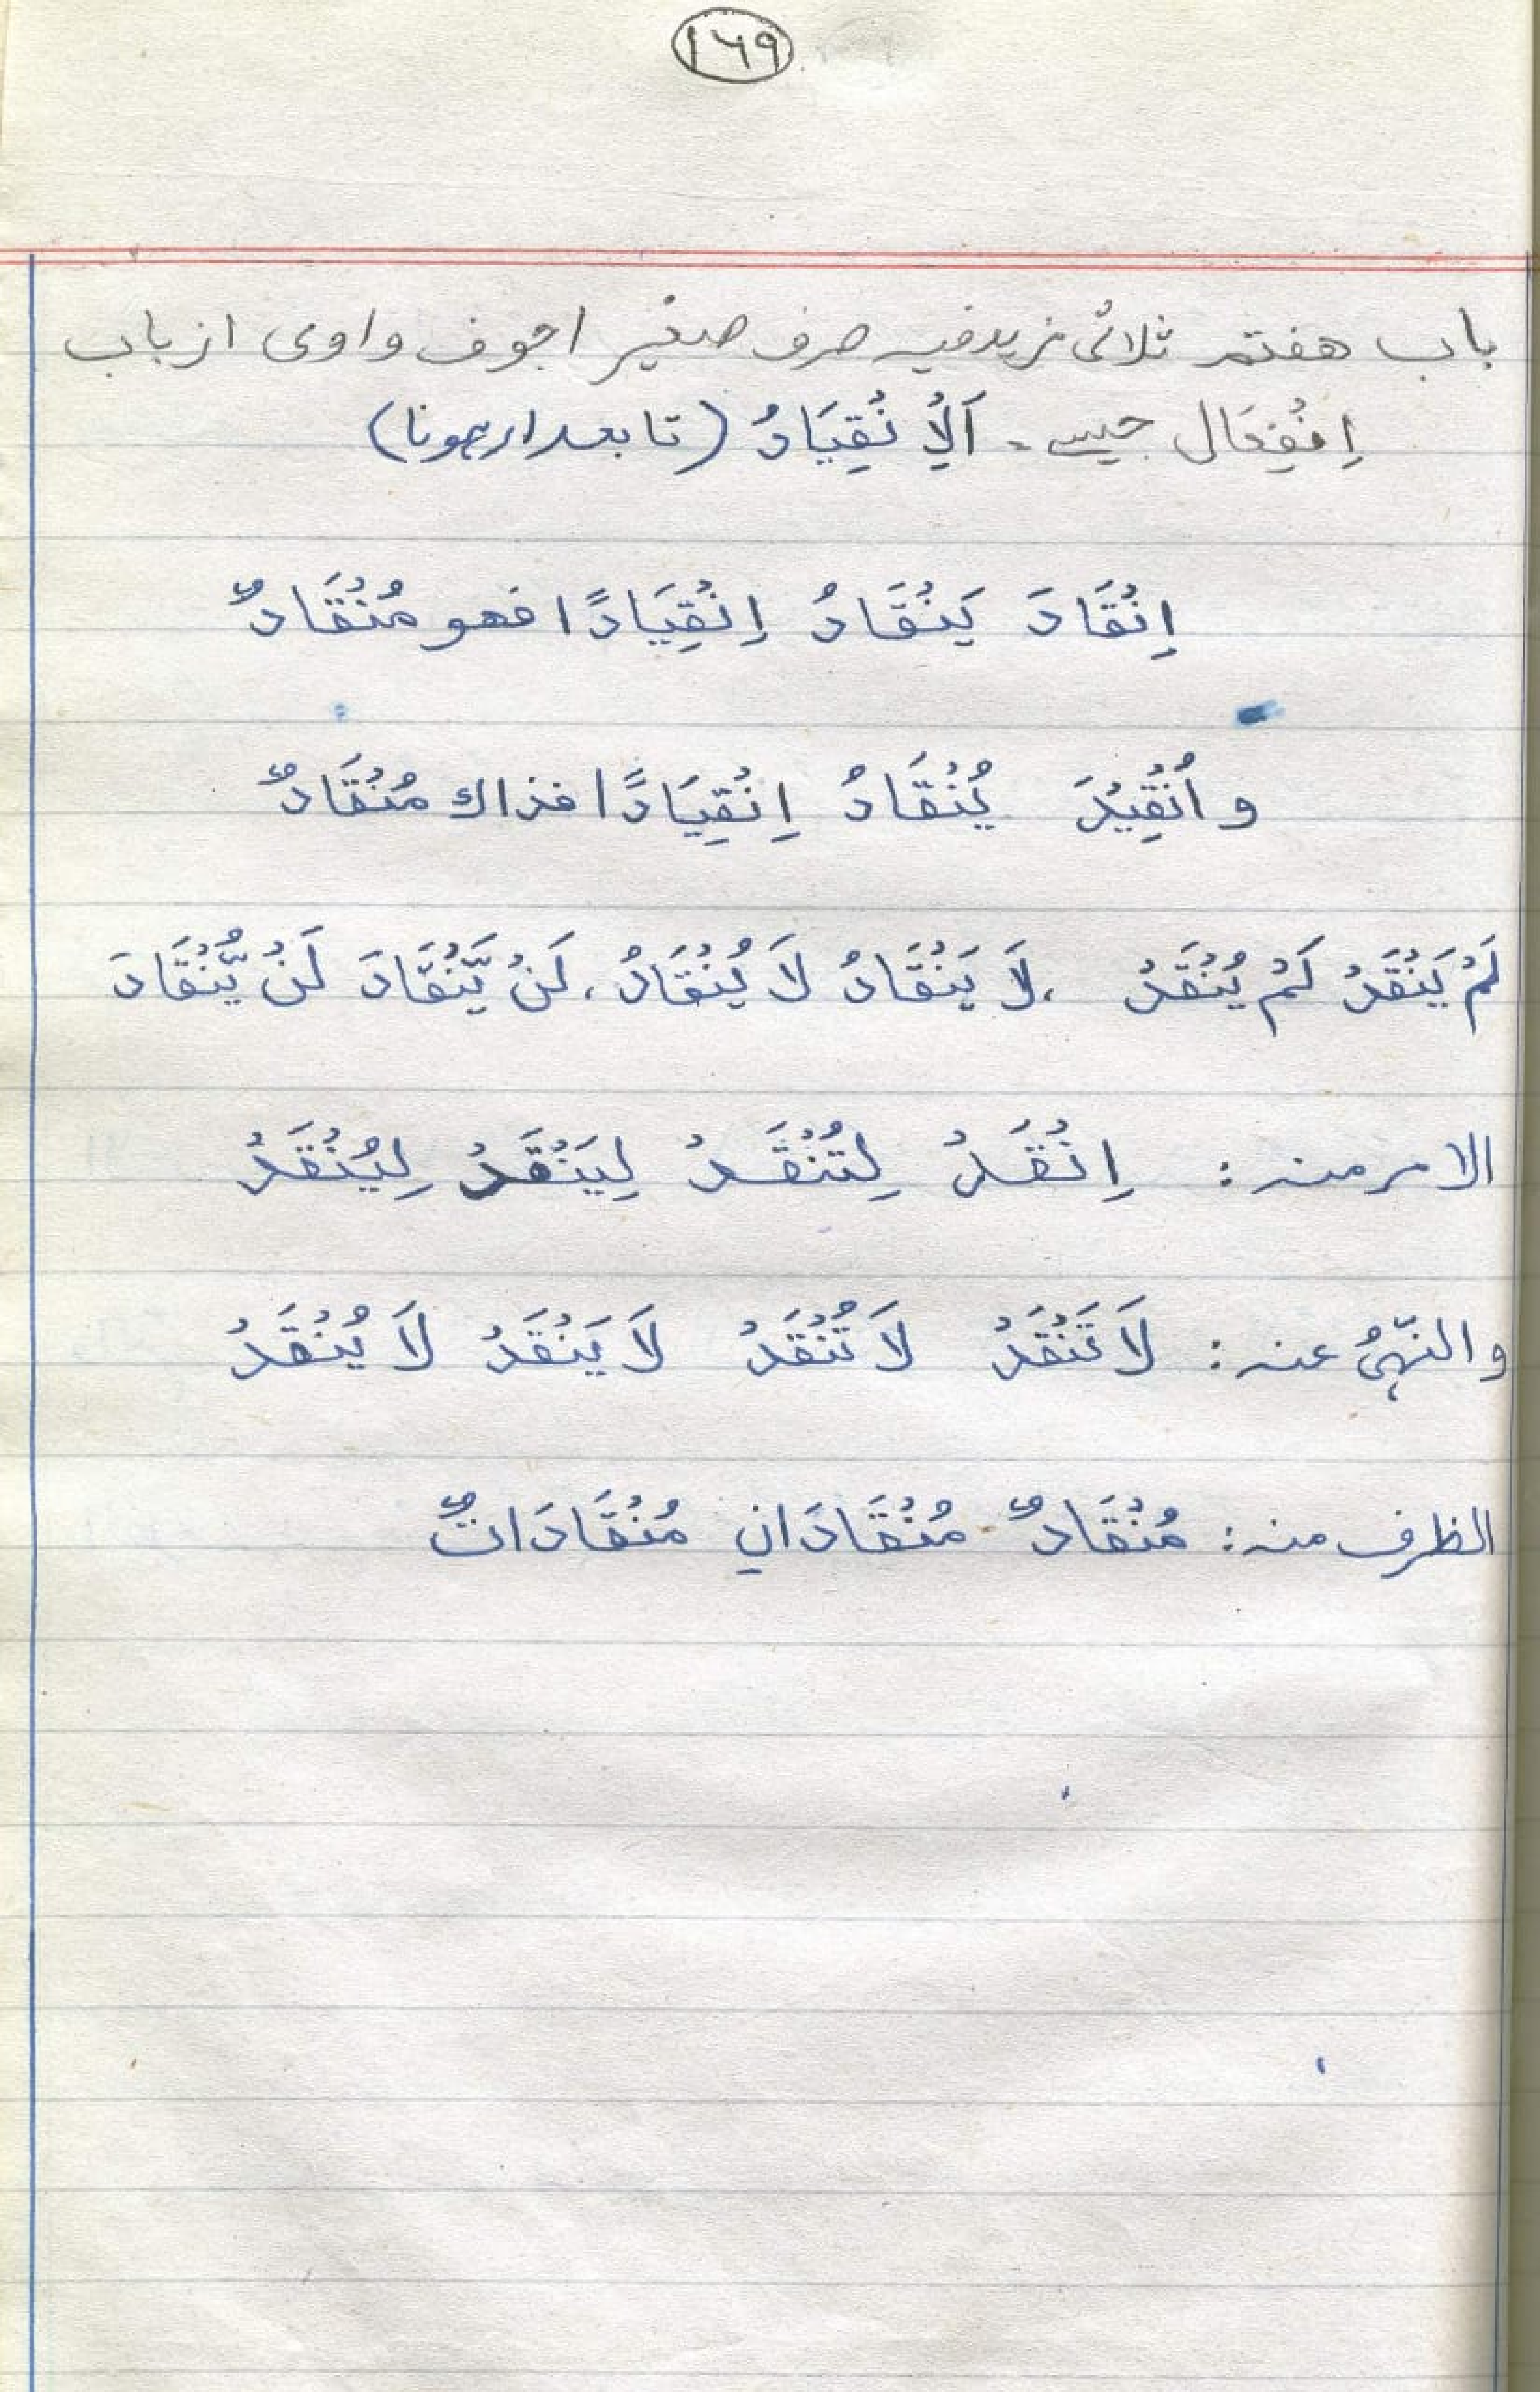 ۱۶۹
باب هفتم ثلاثی مزیدفیہ صرف صغیر اجوف واوی از باب
اِنْفِعَال جیسے۔ اَلْاِنْقِيَادُ (تابعدار ہونا)
اِنْقَادَ يَنْقَادُ اِنْقِيَادًا فهو مُنْقَادٌ
و اُنْقِيْدَ يُنْقَادُ اِنْقِيَادًا فذاك مُنْقَادٌ
لَمْ يَنْقَدْ لَمْ يُنْقَدْ ، لَا يَنْقَادُ لَا يُنْقَادُ ، لَنْ يَّنْقَادَ لَنْ يُّنْقَادَ
الامر منه : اِنْقَدْ لِتُنْقَدْ لِيَنْقَدْ لِيُنْقَدْ
و النّهىُ عنه : لَا تَنْقَدْ لَا تُنْقَدْ لَا يَنْقَدْ لَا يُنْقَدْ
الظرف منه : مُنْقَادٌ مُنْقَادَانِ مُنْقَادَاتٌ